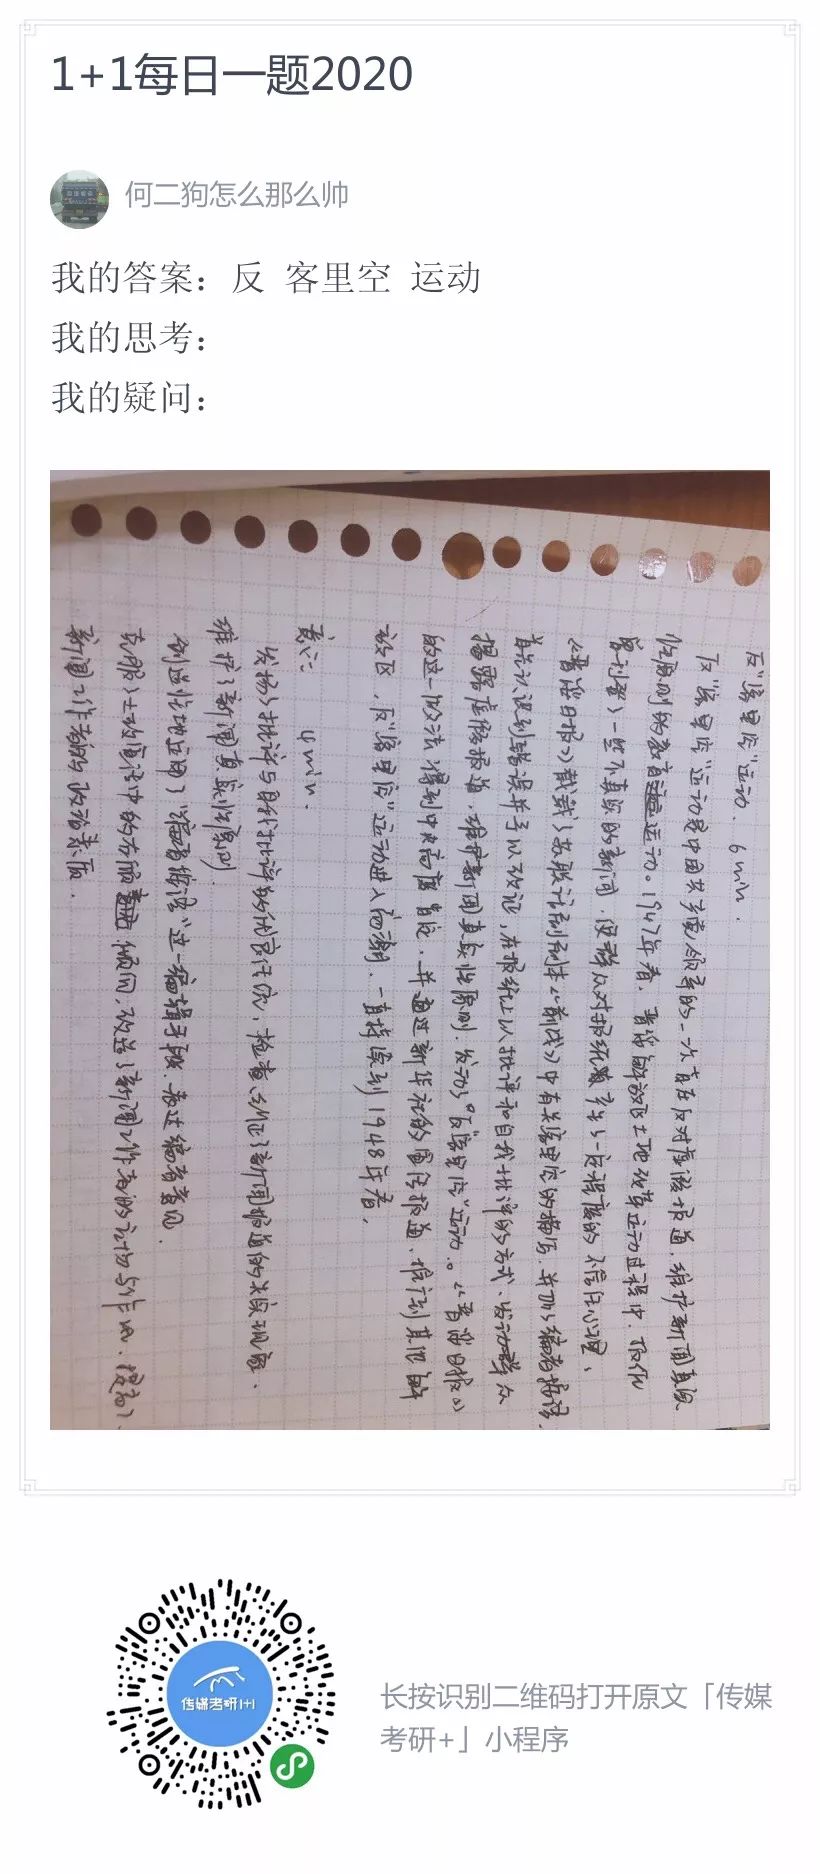 1+1每日一题2020
何二狗怎么那么帅
我的答案：反 客里空 运动
我的思考：
我的疑问：
反“客里空”运动. 6min.
反“客里空”运动是中国共产党领导的一次旨在反对虚假报道.维护新闻真实
性原则的教育运动。1947年春.晋绥解放区土地改革运动过程中.
一些不真实的新闻.使群众对报纸产生了一定程度的不信任心理.
《晋绥日报》载了苏联《前线》中有关客里空的描写.并加了编者按语.
认识到错误并予以改正.在报纸上以批评和自我批评的方式.发动群众
揭露虚假报道.维护新闻真实性原则.发动了“反客里空”运动。《晋绥日报》
的这一做法得到中央高度肯定.并通过新华社的报道.推行到其他解
放区.反“客里空”运动进入高潮.一直持续到1948年春.
意义: 4min.
发扬了批评与自我批评的优良作风,检查纠正了新闻报道的失实现象.
维护了新闻真实性原则.
创造性地运用了“编者按语”这一编辑手段.表达编者意见.
克服了土改宣传中的右倾倾向.改造了新闻工作者的立场与作风.提高了
新闻工作者的政治素质.
传媒考研1+1
长按识别二维码打开原文「传媒
考研+」小程序